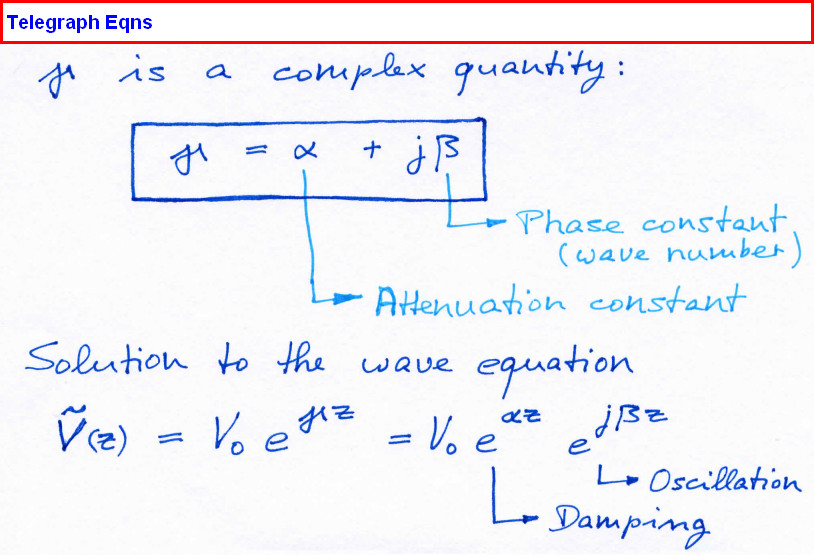 Telegraph Eqns
γ is a complex quantity:
γ = α + jβ
Phase constant
(wave number)
Attenuation constant
Solution to the wave equation
Ṽ(z) = V₀ e^γz = V₀ e^αz e^jβz
Oscillation
Damping